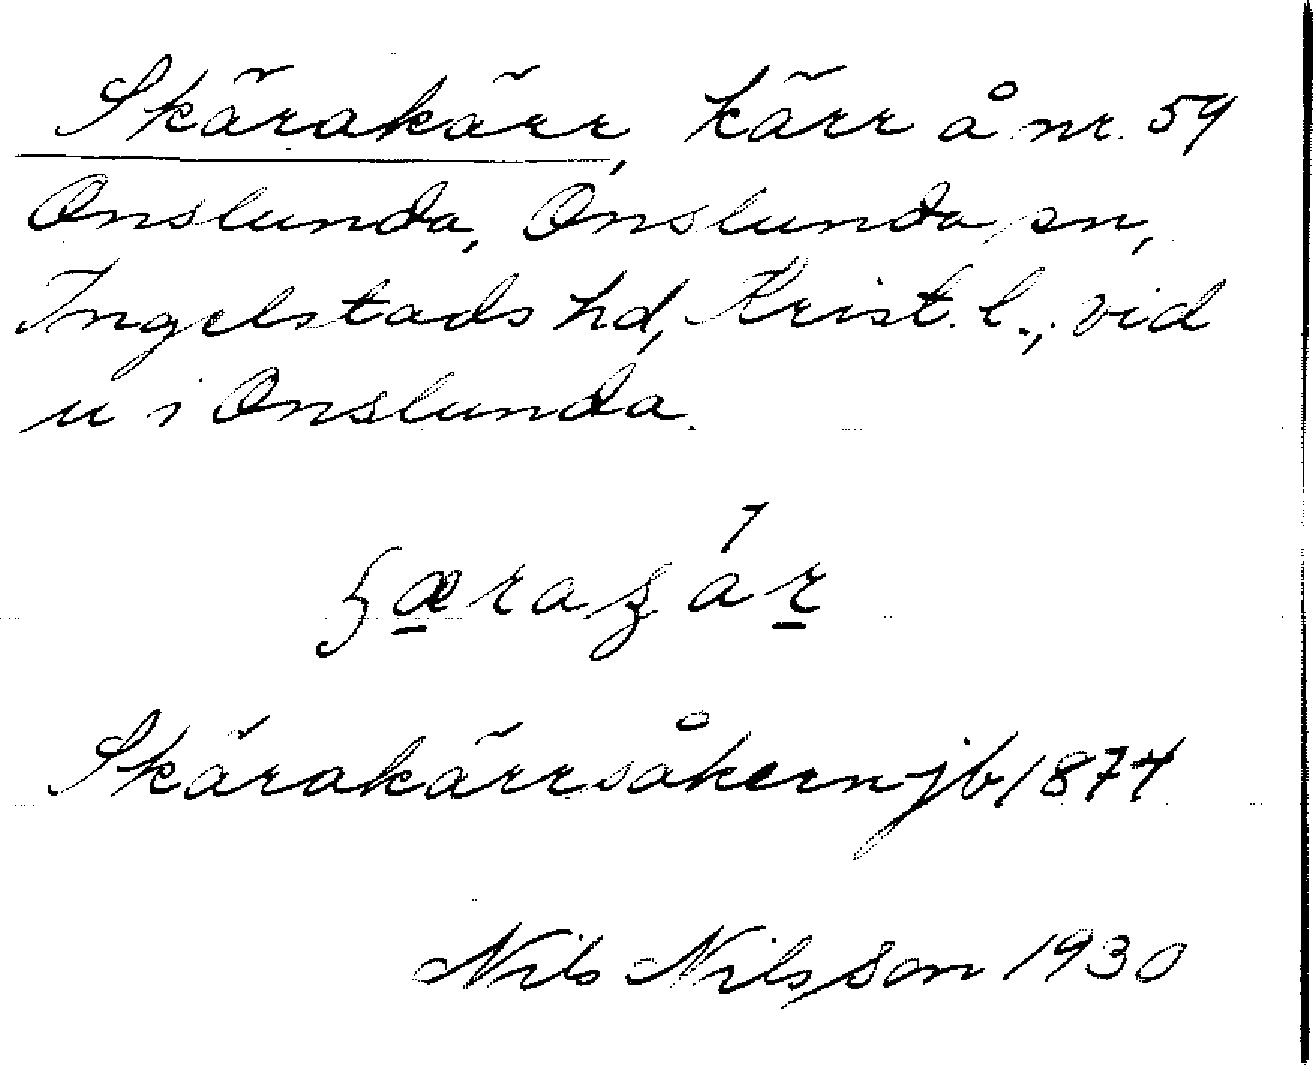 Skärakärr, kärr å nr. 59
Onslunda, Onslunda sn,
Ingelstads hd, Krist. l., vid
u i Onslunda.
Skärakärrsåkern jb 1874
Nils Nilsson 1930